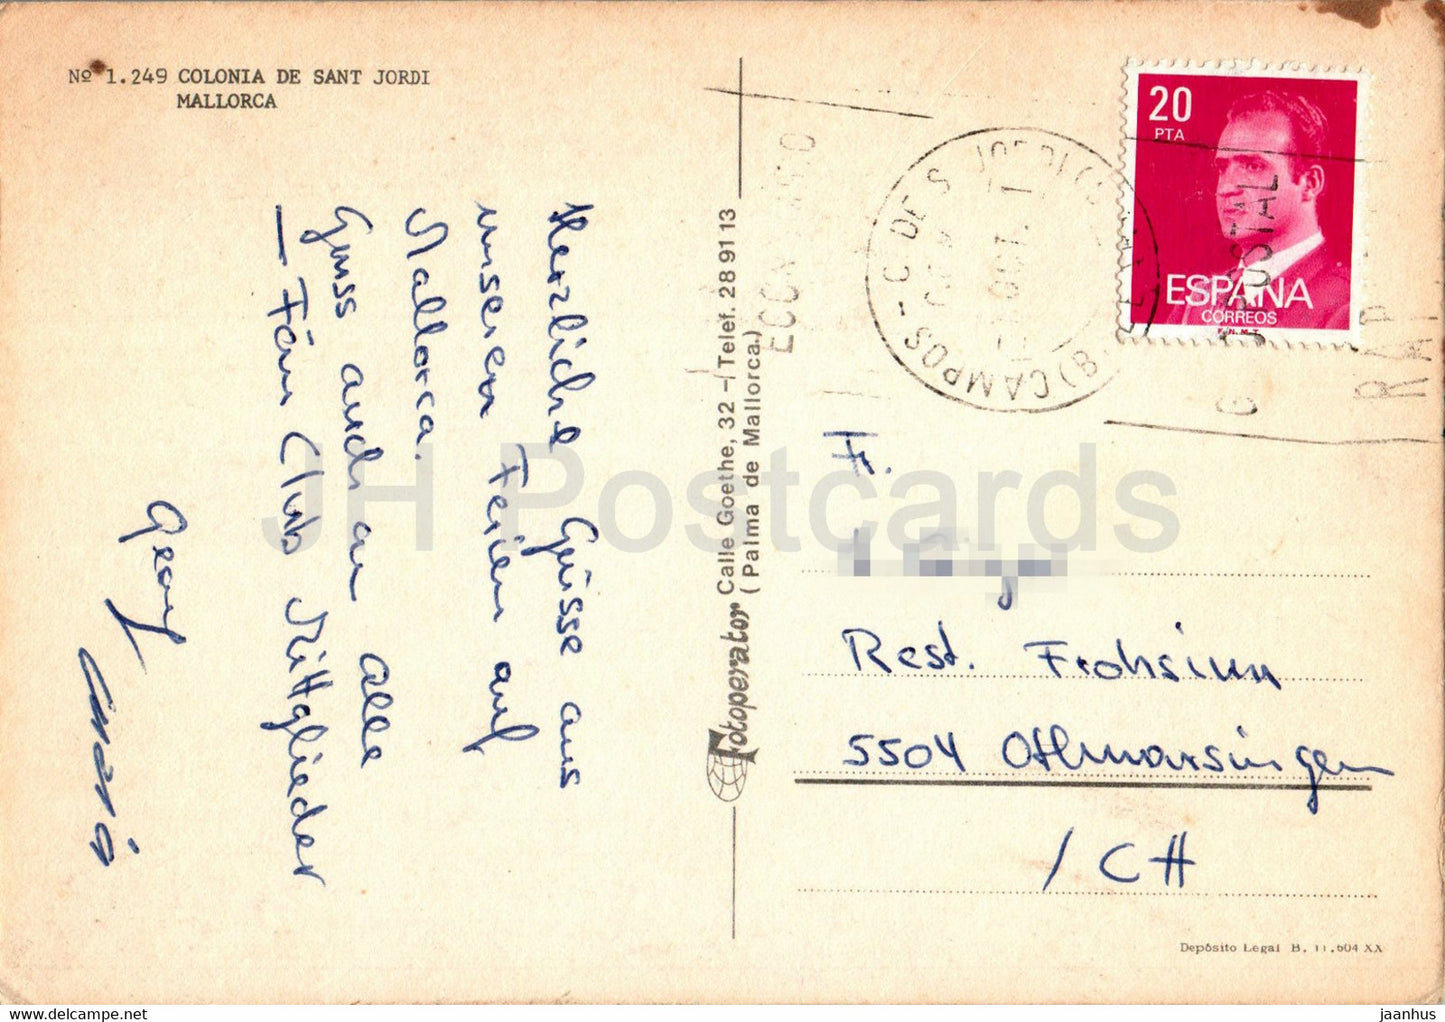 Nº 1.249 COLONIA DE SANT JORDI
MALLORCA
Herzliche Grüsse aus
unseren Ferien auf
Mallorca.
Gruss auch an alle
Fän Club Mittglieder
Georg
Maria
Fotoperator Calle Goethe, 32 - Telef. 28 91 13
(Palma de Mallorca)
20
PTA
ESPAÑA
CORREOS
F.N.M.T.
CAMPOS - C DE S JORDI
OCT.
POSTAL
Fr.
Rest. Frohsinn
5504 Othmarsingen
/ CH
Depósito Legal B. 11.604 XX
JH Postcards
hippostcard.com/store/jhpostcards
jaanhus